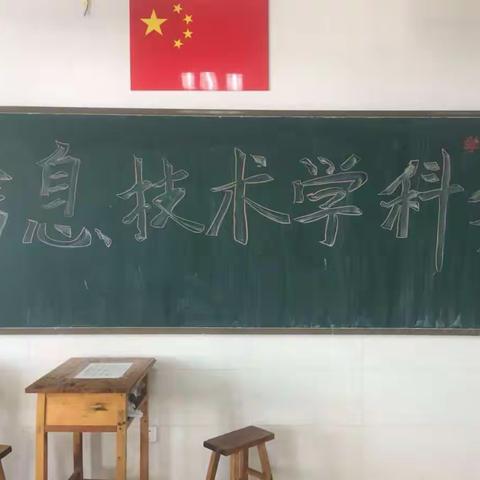 信息技术学科